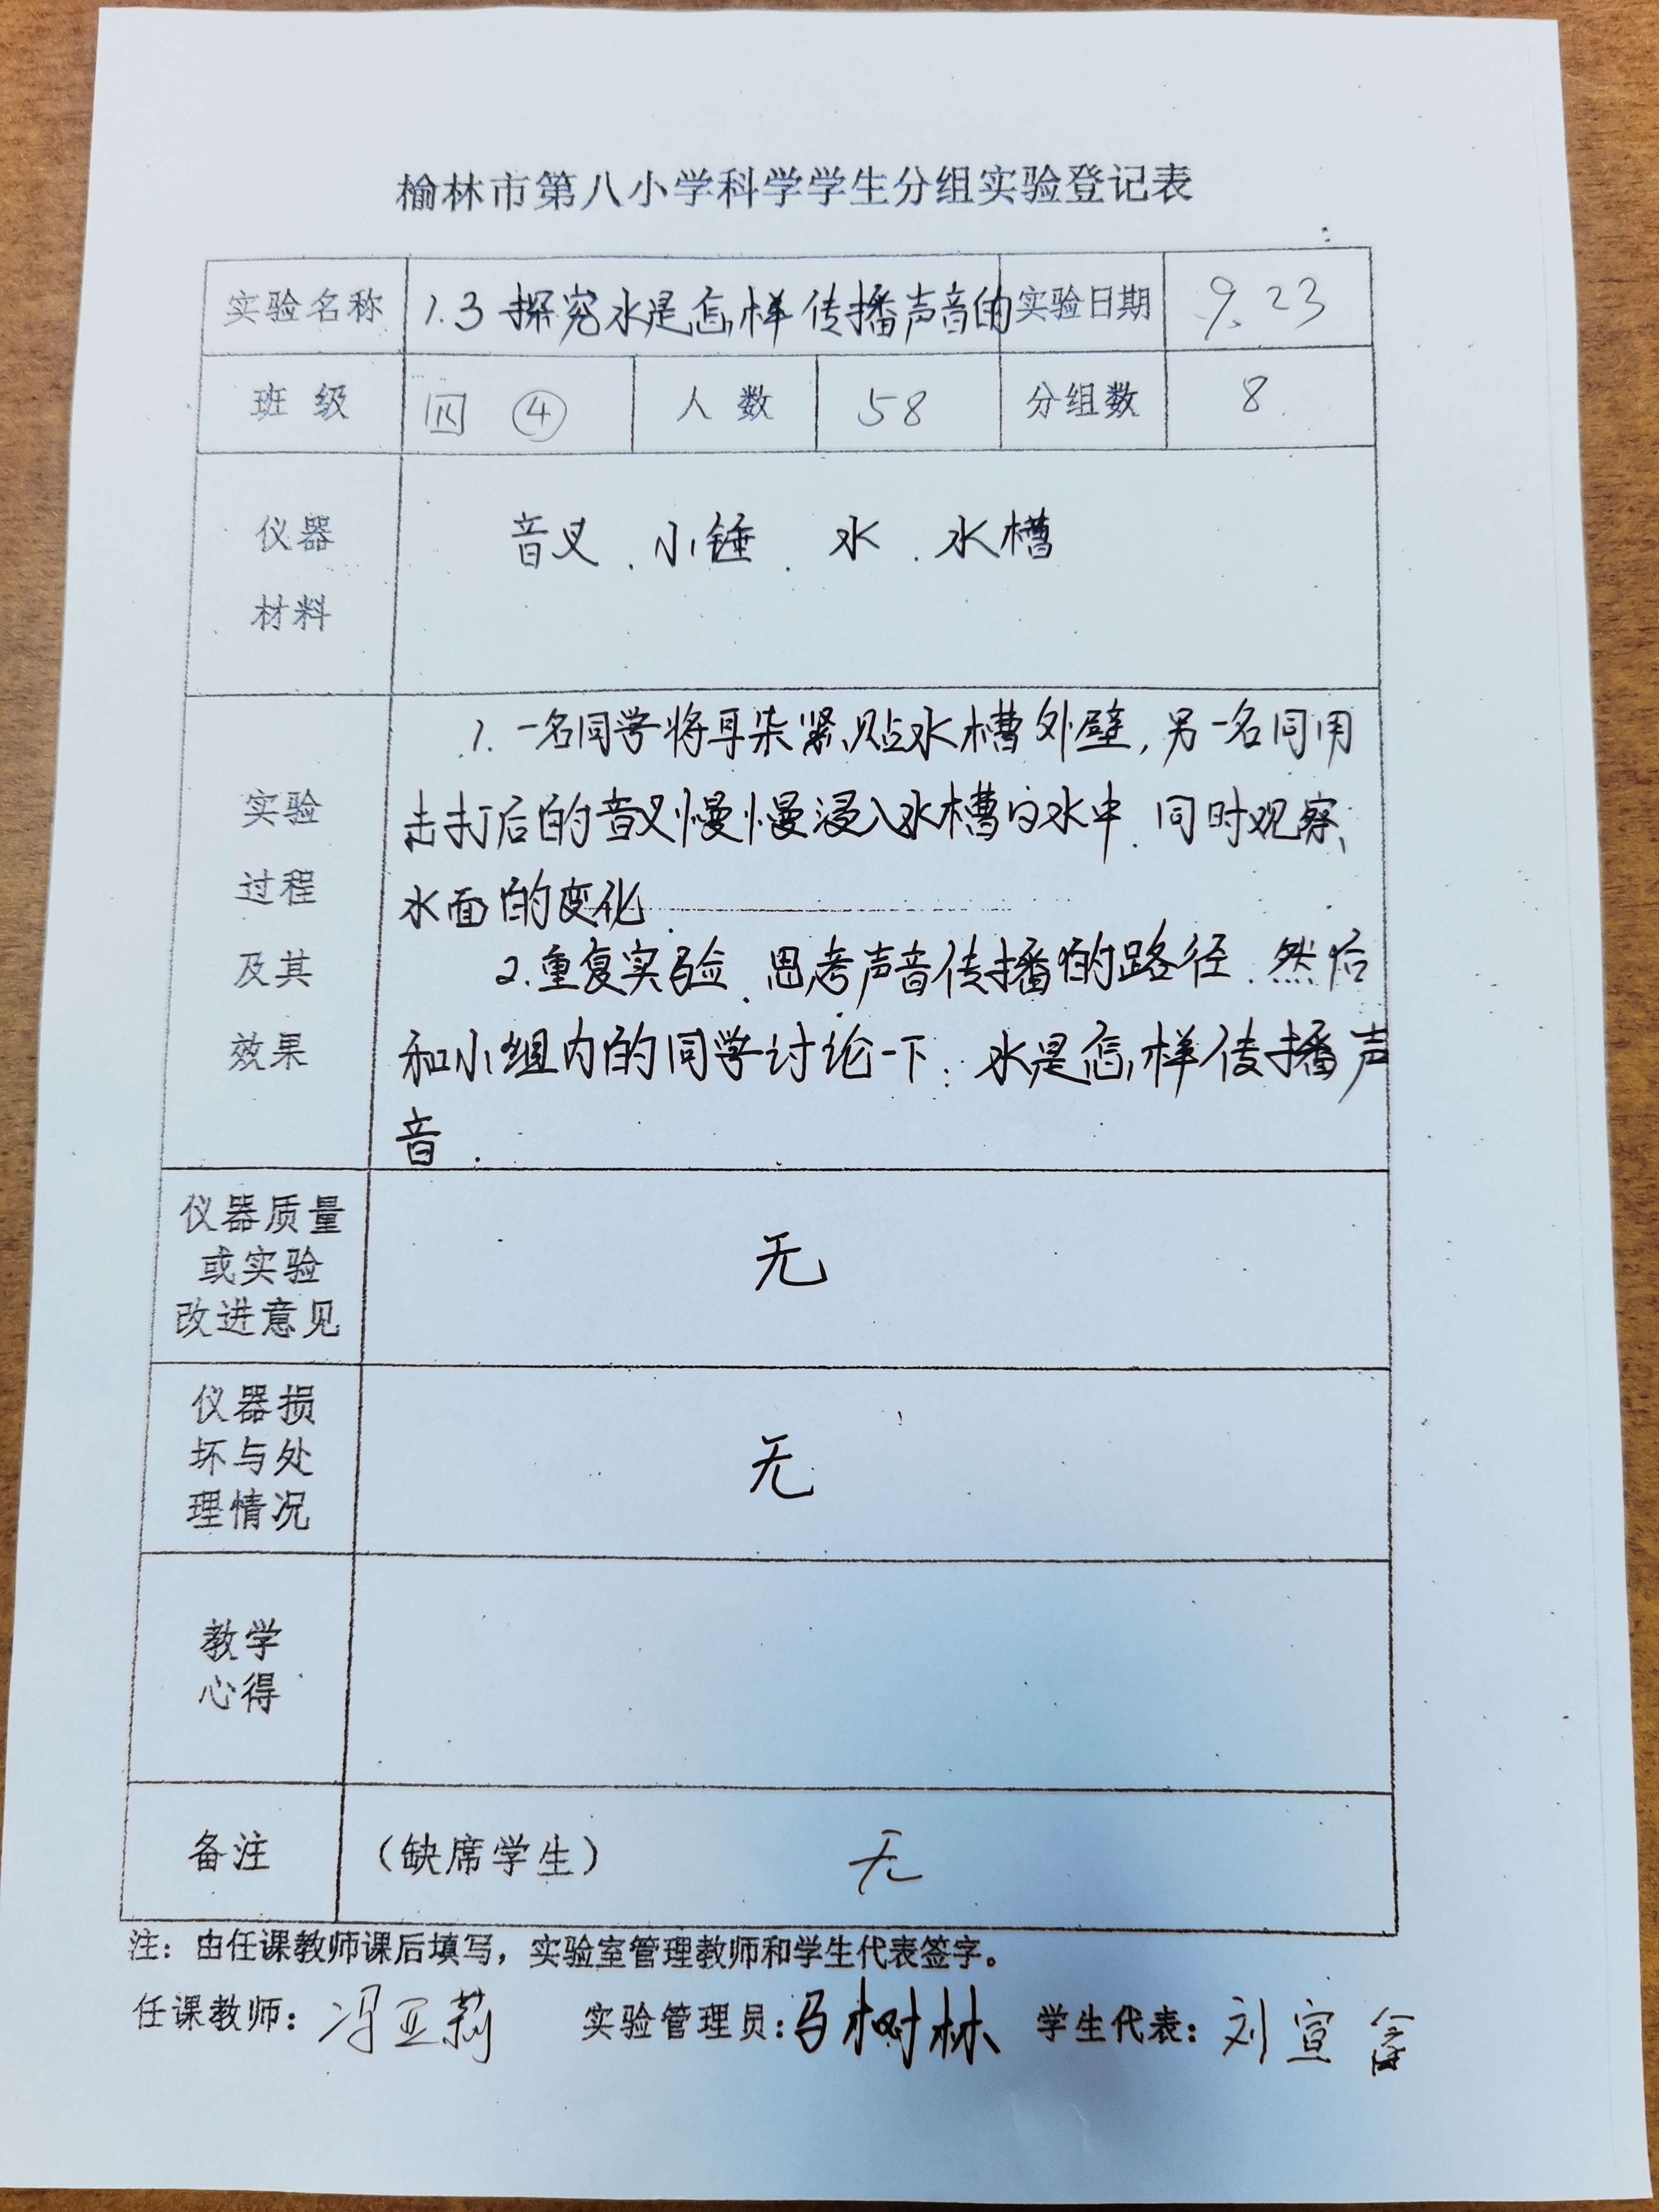 榆林市第八小学科学学生分组实验登记表
实验名称 1.3 探究水是怎样传播声音的 实验日期 9.23
班级 四 ④ 人数 58 分组数 8.
仪器
材料
音叉.小锤.水.水槽
实验
过程
及其
效果
1.一名同学将耳朵紧贴水槽外壁,另一名同用
击打后的音叉慢慢浸入水槽的水中.同时观察
水面的变化.
2.重复实验.思考声音传播的路径.然后
和小组内的同学讨论一下:水是怎样传播声
音.
仪器质量
或实验
改进意见
无
仪器损
坏与处
理情况
无
教学
心得
备注 (缺席学生) 无
注:由任课教师课后填写,实验室管理教师和学生代表签字。
任课教师:冯亚莉 实验管理员:马树林 学生代表:刘宣